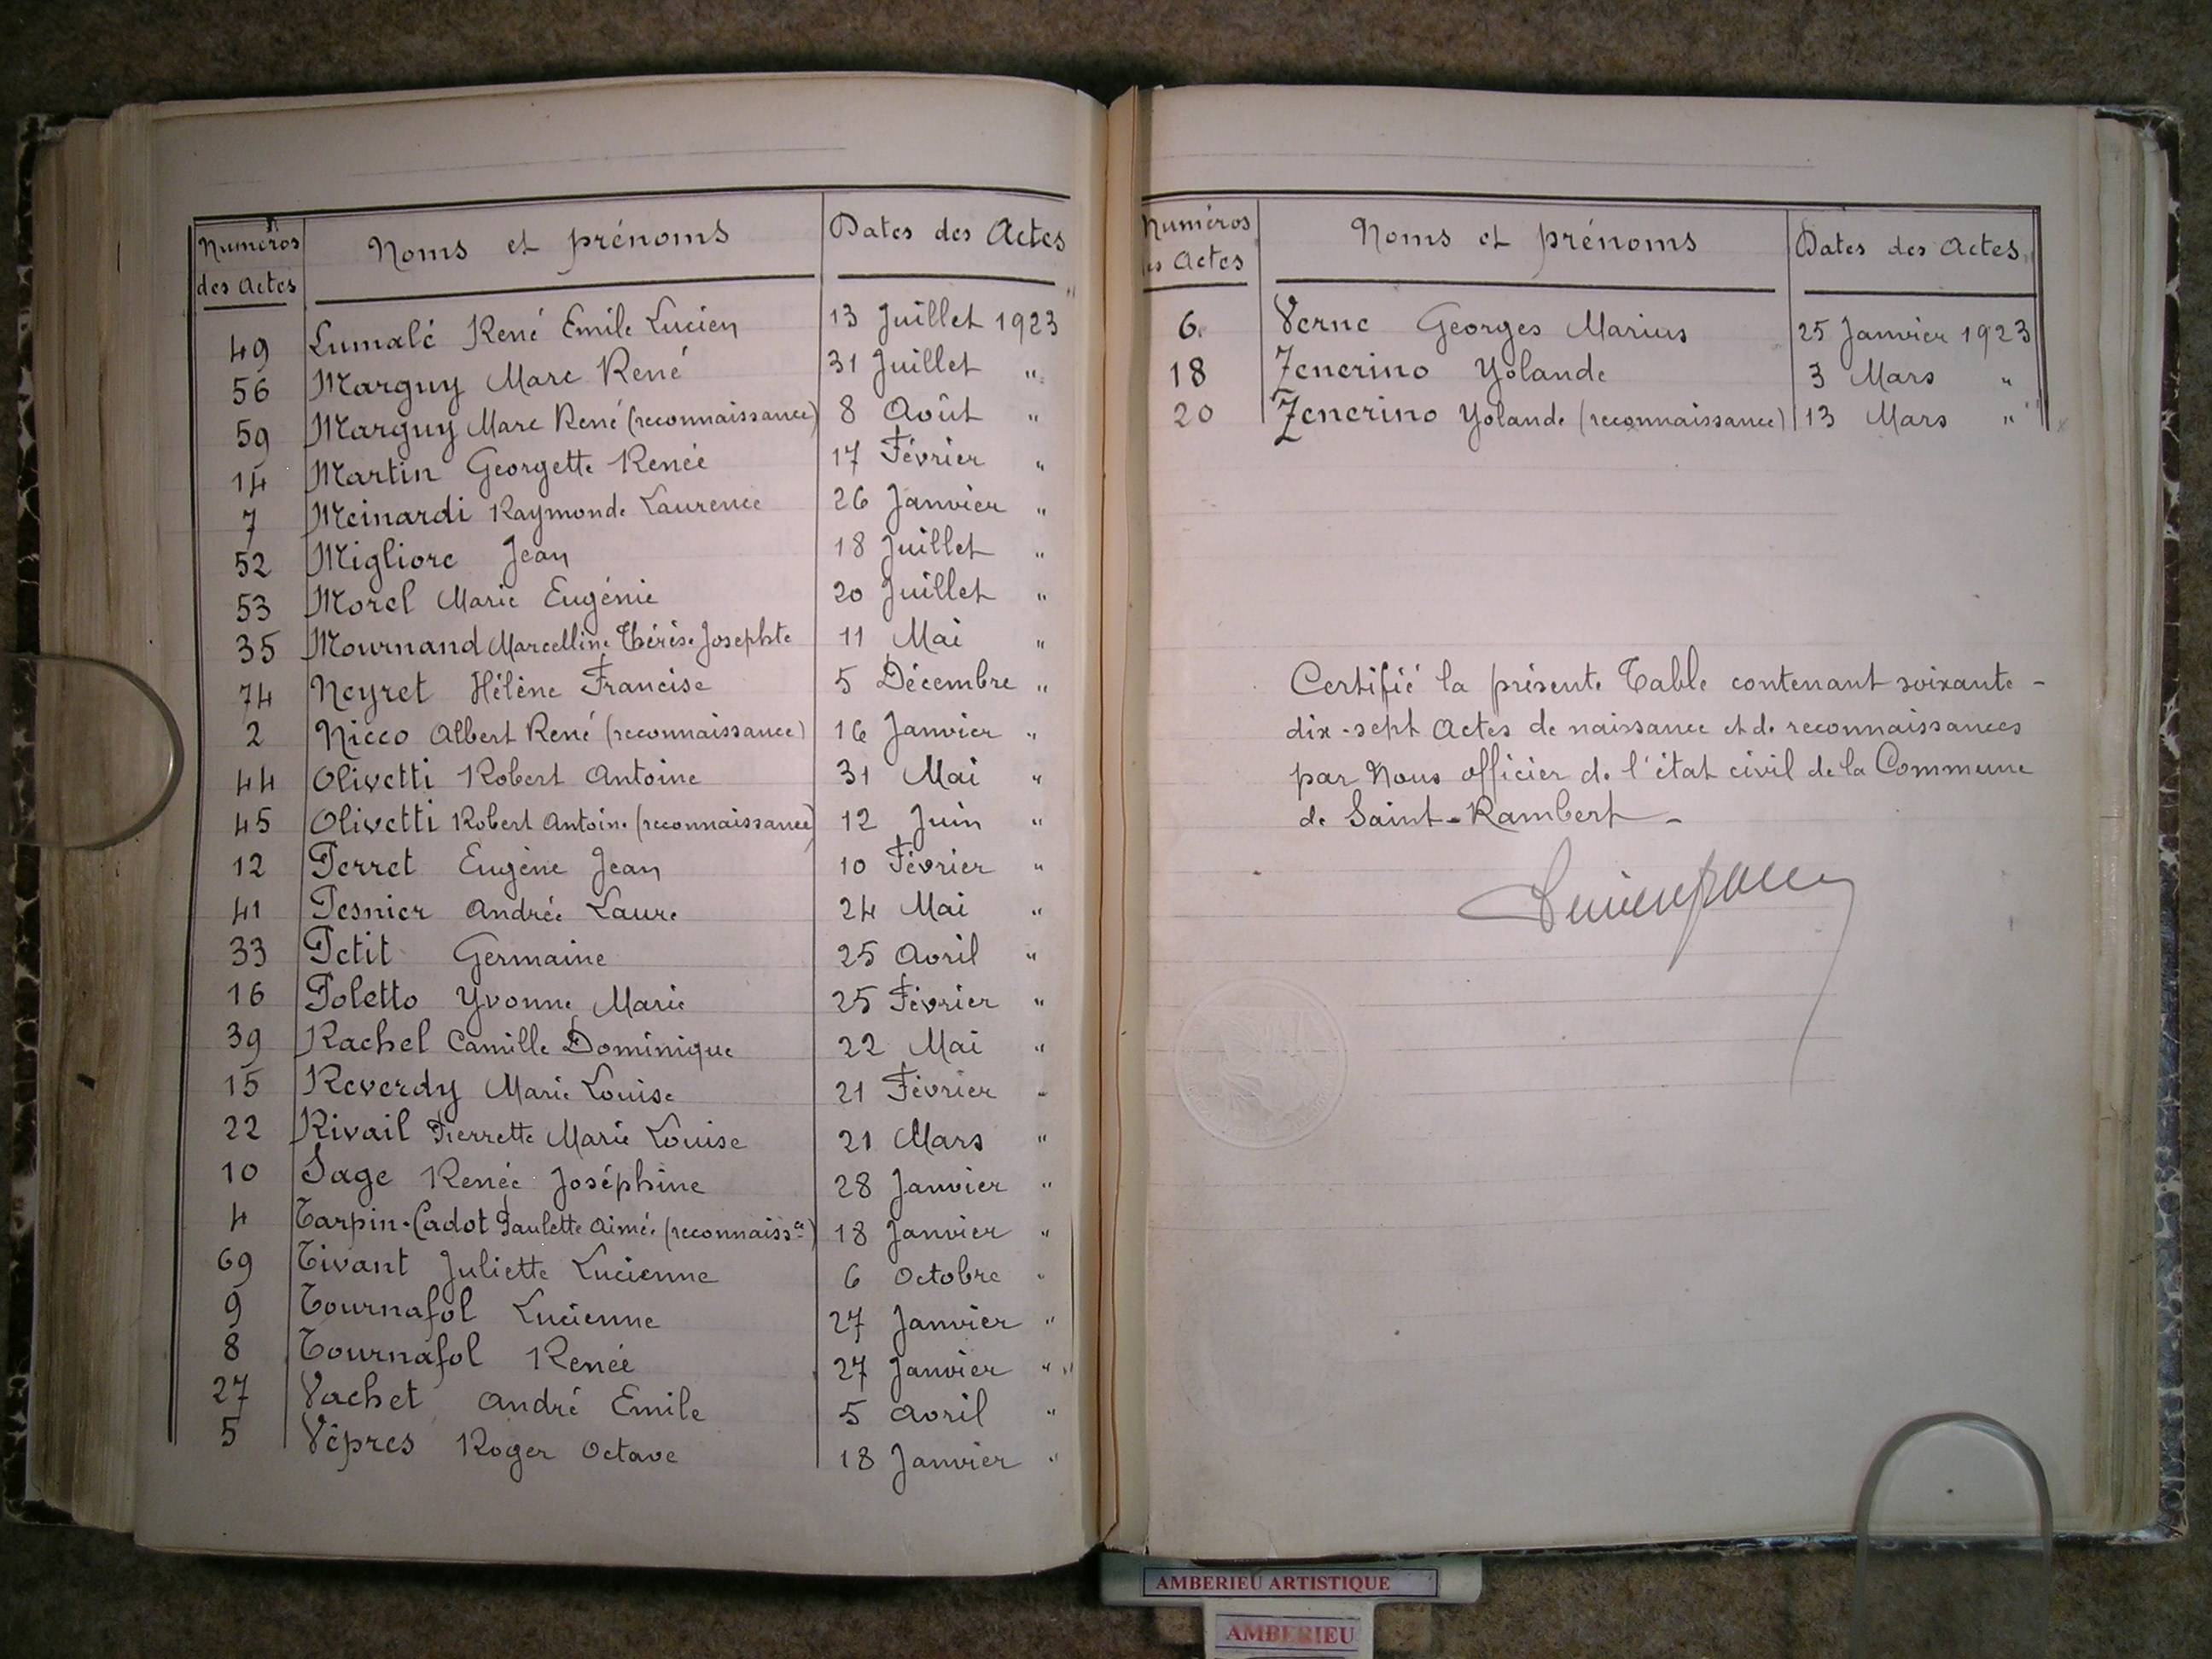 Numéros des Actes Noms et prénoms Dates des Actes
49 Lumalé René Emile Lucien 13 Juillet 1923
56 Marguy Marc René 31 Juillet "
59 Marguy Marc René (reconnaissance) 8 Août "
14 Martin Georgette Renée 17 Février "
7 Meinardi Raymonde Laurence 26 Janvier "
52 Migliore Jean 18 Juillet "
53 Morel Marie Eugénie 20 Juillet "
35 Mournand Marcelline Thérèse Josephte 11 Mai "
74 Neyret Hélène Francise 5 Décembre "
2 Nicco Albert René (reconnaissance) 16 Janvier "
44 Olivetti Robert Antoine 31 Mai "
45 Olivetti Robert Antoine (reconnaissance) 12 Juin "
12 Perret Eugène Jean 10 Février "
41 Pesnier Andrée Laure 24 Mai "
33 Petit Germaine 25 Avril "
16 Poletto Yvonne Marie 25 Février "
39 Rachel Camille Dominique 22 Mai "
15 Reverdy Marie Louise 21 Février "
22 Rivail Pierrette Marie Louise 21 Mars "
10 Sage Renée Joséphine 28 Janvier "
4 Tarpin-Cadot Paulette Aimée (reconnaiss.ce) 18 Janvier "
69 Tivant Juliette Lucienne 6 Octobre "
9 Tournafol Lucienne 27 Janvier "
8 Tournafol Renée 27 Janvier "
27 Vachet André Emile 5 Avril "
5 Vêpres Roger Octave 18 Janvier "
Numéros des Actes Noms et prénoms Dates des Actes
6 Verne Georges Marius 25 Janvier 1923
18 Zenerino Yolande 3 Mars "
20 Zenerino Yolande (reconnaissance) 13 Mars "
Certifié la présente Table contenant soixante-
dix-sept Actes de naissance et de reconnaissances
par Nous officier de l'état civil de la Commune
de Saint-Rambert -
AMBERIEU ARTISTIQUE
AMBERIEU